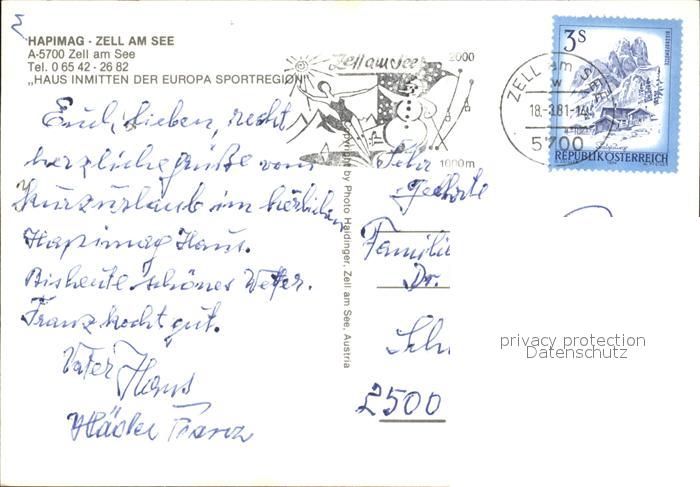 HAPIMAG - ZELL AM SEE
A-5700 Zell am See
Tel. 0 65 42 - 26 82
„HAUS INMITTEN DER EUROPA SPORTREGION"
Euch, Lieben, recht
herzliche Grüße vom
Kurzurlaub im herrlichen
Hapimag Haus.
Bis heute schönes Wetter.
Franz kocht gut.
Vater Hans
Franz
Copyright by Photo Haidinger, Zell am See, Austria
Zell am See
2000
1000m
ZELL am SEE
18.-3.81-14
5700
3S
REPUBLIK ÖSTERREICH
Sehr
geehrte
Familie
Dr.
Sch
2500
privacy protection
Datenschutz